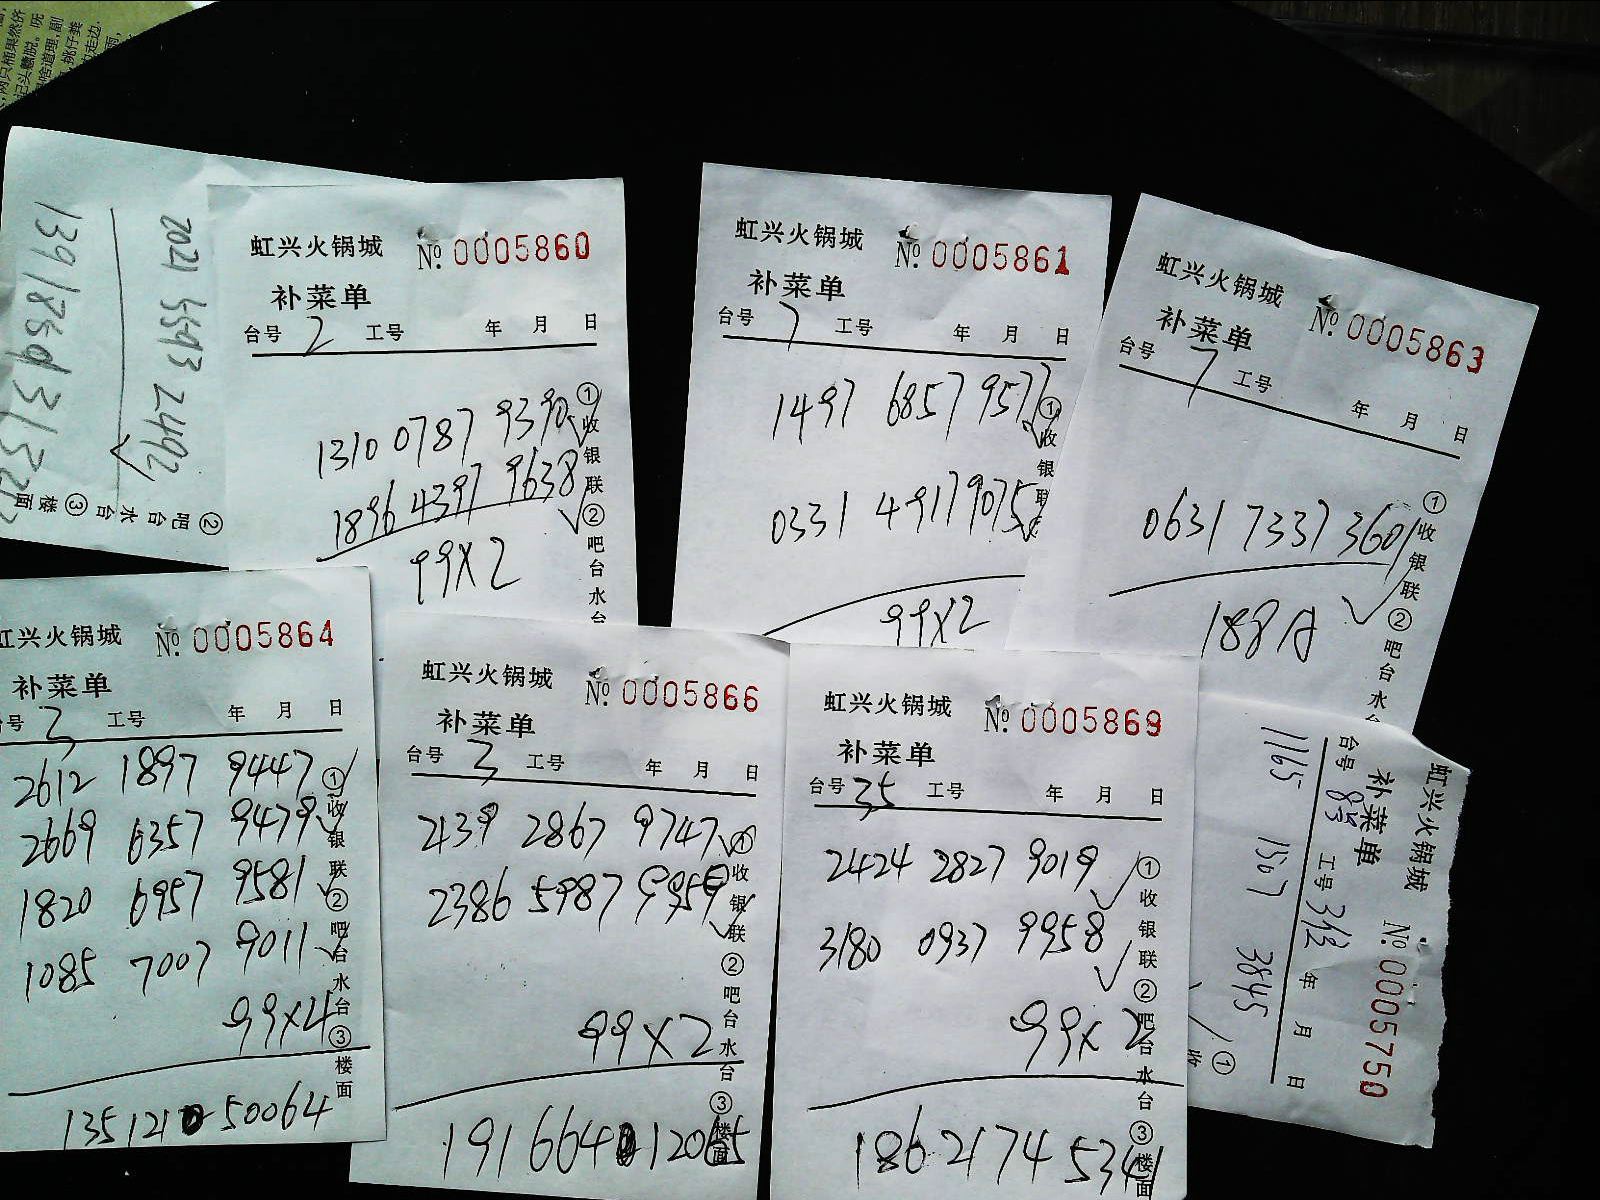 2021 5593 2492
虹兴火锅城 No. 0005860
补菜单
台号 2 工号 年 月 日
1310 0787 9390
1896 4397 9638
99X2
①收银联②吧台水台
②吧台水台③楼面
虹兴火锅城 No. 0005861
补菜单
台号 7 工号 年 月 日
1497 6857 9577
0331 4917 9075
99X2
①收银联
虹兴火锅城 No. 0005863
补菜单
台号 7 工号 年 月 日
0631 7337 3601
188A
①收银联②吧台水台
虹兴火锅城 No. 0005864
补菜单
台号 3 工号 年 月 日
2612 1897 9447
2669 6357 9479
1820 6957 9581
1085 7007 9011
99X4
①收银联②吧台水台③楼面
虹兴火锅城 No. 0005866
补菜单
台号 3 工号 年 月 日
2139 2867 9747
2386 5987 9959
99X2
①收银联②吧台水台③楼面
虹兴火锅城 No. 0005869
补菜单
台号 35 工号 年 月 日
2424 2827 9019
3180 0937 9958
99X2
①收银联②吧台水台③楼面
186 2174 5341
虹兴火锅城 No. 0005750
补菜单
台号 工号 年 月 日
1165 1567 3845
①收